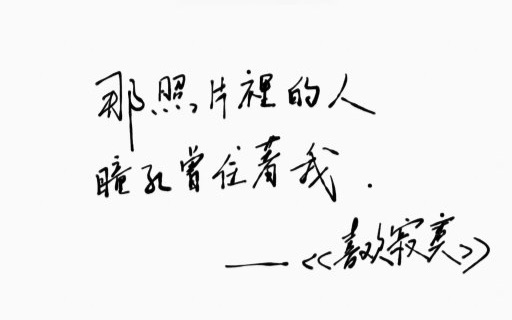 那照片裡的人
瞳孔曾住着我.
——《喜欢寂寞》